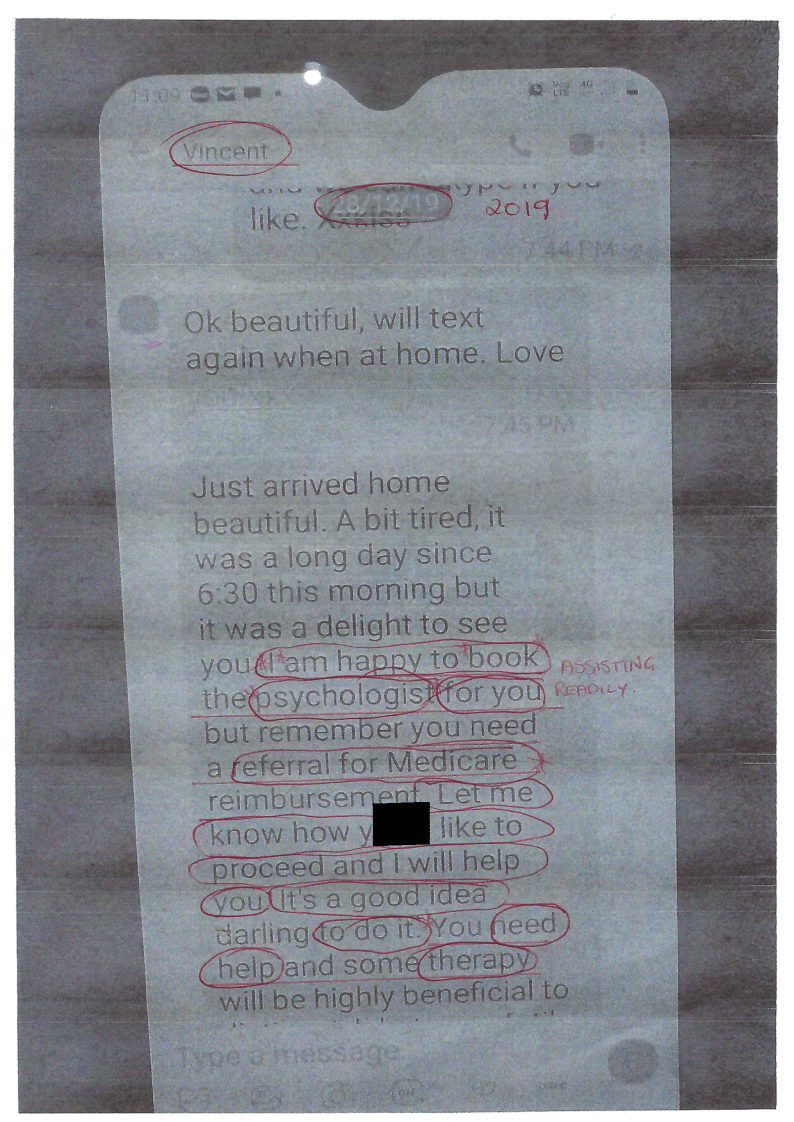 13:09
Vincent
like. Xxkiss
28/12/19
2019
7:44 PM
Ok beautiful, will text
again when at home. Love
7:45 PM
Just arrived home
beautiful. A bit tired, it
was a long day since
6:30 this morning but
it was a delight to see
you I am happy to book
ASSISTING
the psychologist for you
READILY.
but remember you need
a referral for Medicare
reimbursement. Let me
know how y like to
proceed and I will help
you. It's a good idea
darling to do it. You need
help and some therapy
will be highly beneficial to
Type a message